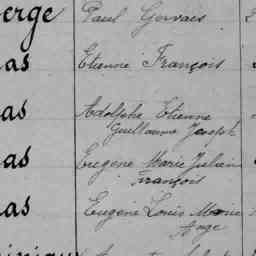 erge Paul Gervais
as Etienne François
as Adolphe Etienne
Guillaume Joseph
as Eugène Marie Julien
François
as Eugène Louis Marie
Ange